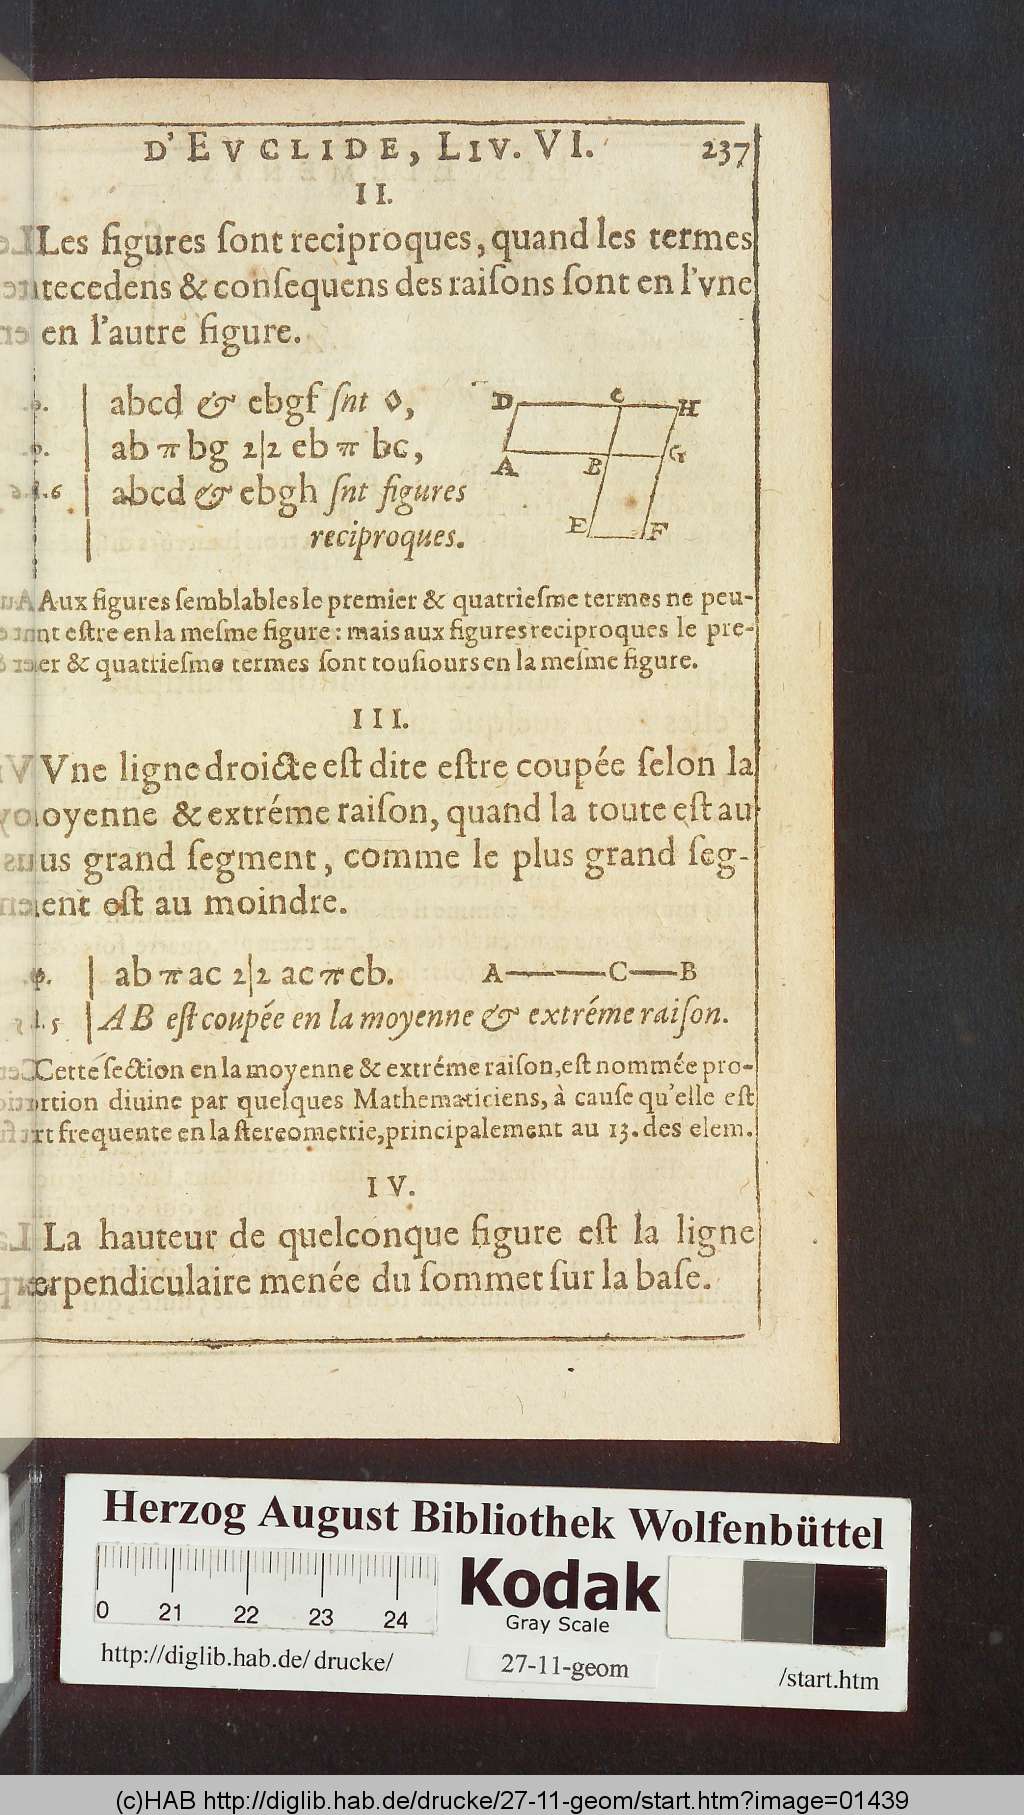 D'EVCLIDE, LIV. VI. 237
II.
Les figures ſont reciproques, quand les termes
tecedens & conſequens des raiſons ſont en l'vne
en l'autre figure.
abcd & ebgf ſnt ◊,
ab π bg 2|2 eb π bc,
6 | abcd & ebgh ſnt figures
reciproques.
D C H
A B G
E F
Aux figures ſemblables le premier & quatrieſme termes ne peu-
nt eſtre en la meſme figure: mais aux figures reciproques le pre-
er & quatrieſme termes ſont touſiours en la meſme figure.
III.
Vne ligne droicte eſt dite eſtre coupée ſelon la
oyenne & extréme raiſon, quand la toute eſt au
us grand ſegment, comme le plus grand ſeg-
ent eſt au moindre.
ab π ac 2|2 ac π cb. A C B
5 | AB eſt coupée en la moyenne & extréme raiſon.
Cette ſection en la moyenne & extréme raiſon, eſt nommée pro-
rtion diuine par quelques Mathematiciens, à cauſe qu'elle eſt
rt frequente en la ſtereometrie, principalement au 13. des elem.
IV.
La hauteur de quelconque figure eſt la ligne
erpendiculaire menée du ſommet ſur la baſe.
Herzog August Bibliothek Wolfenbüttel
0 21 22 23 24
Kodak
Gray Scale
http://diglib.hab.de/drucke/ 27-11-geom /start.htm
(c)HAB http://diglib.hab.de/drucke/27-11-geom/start.htm?image=01439